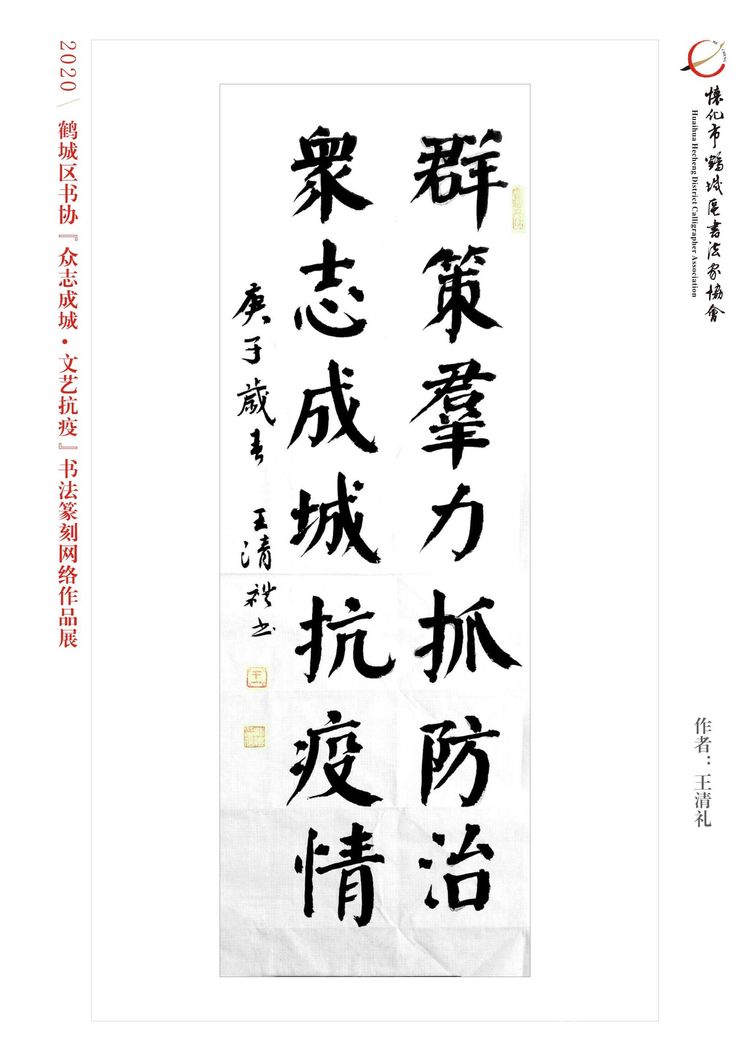 懷化市鶴城區書法家協會
Huaihua Hecheng District Calligrapher Association
作者：王清礼
群策羣力抓防治
衆志成城抗疫情
庚子歲春 王清礼书
2020 / 鹤城区书协『众志成城·文艺抗疫』书法篆刻网络作品展